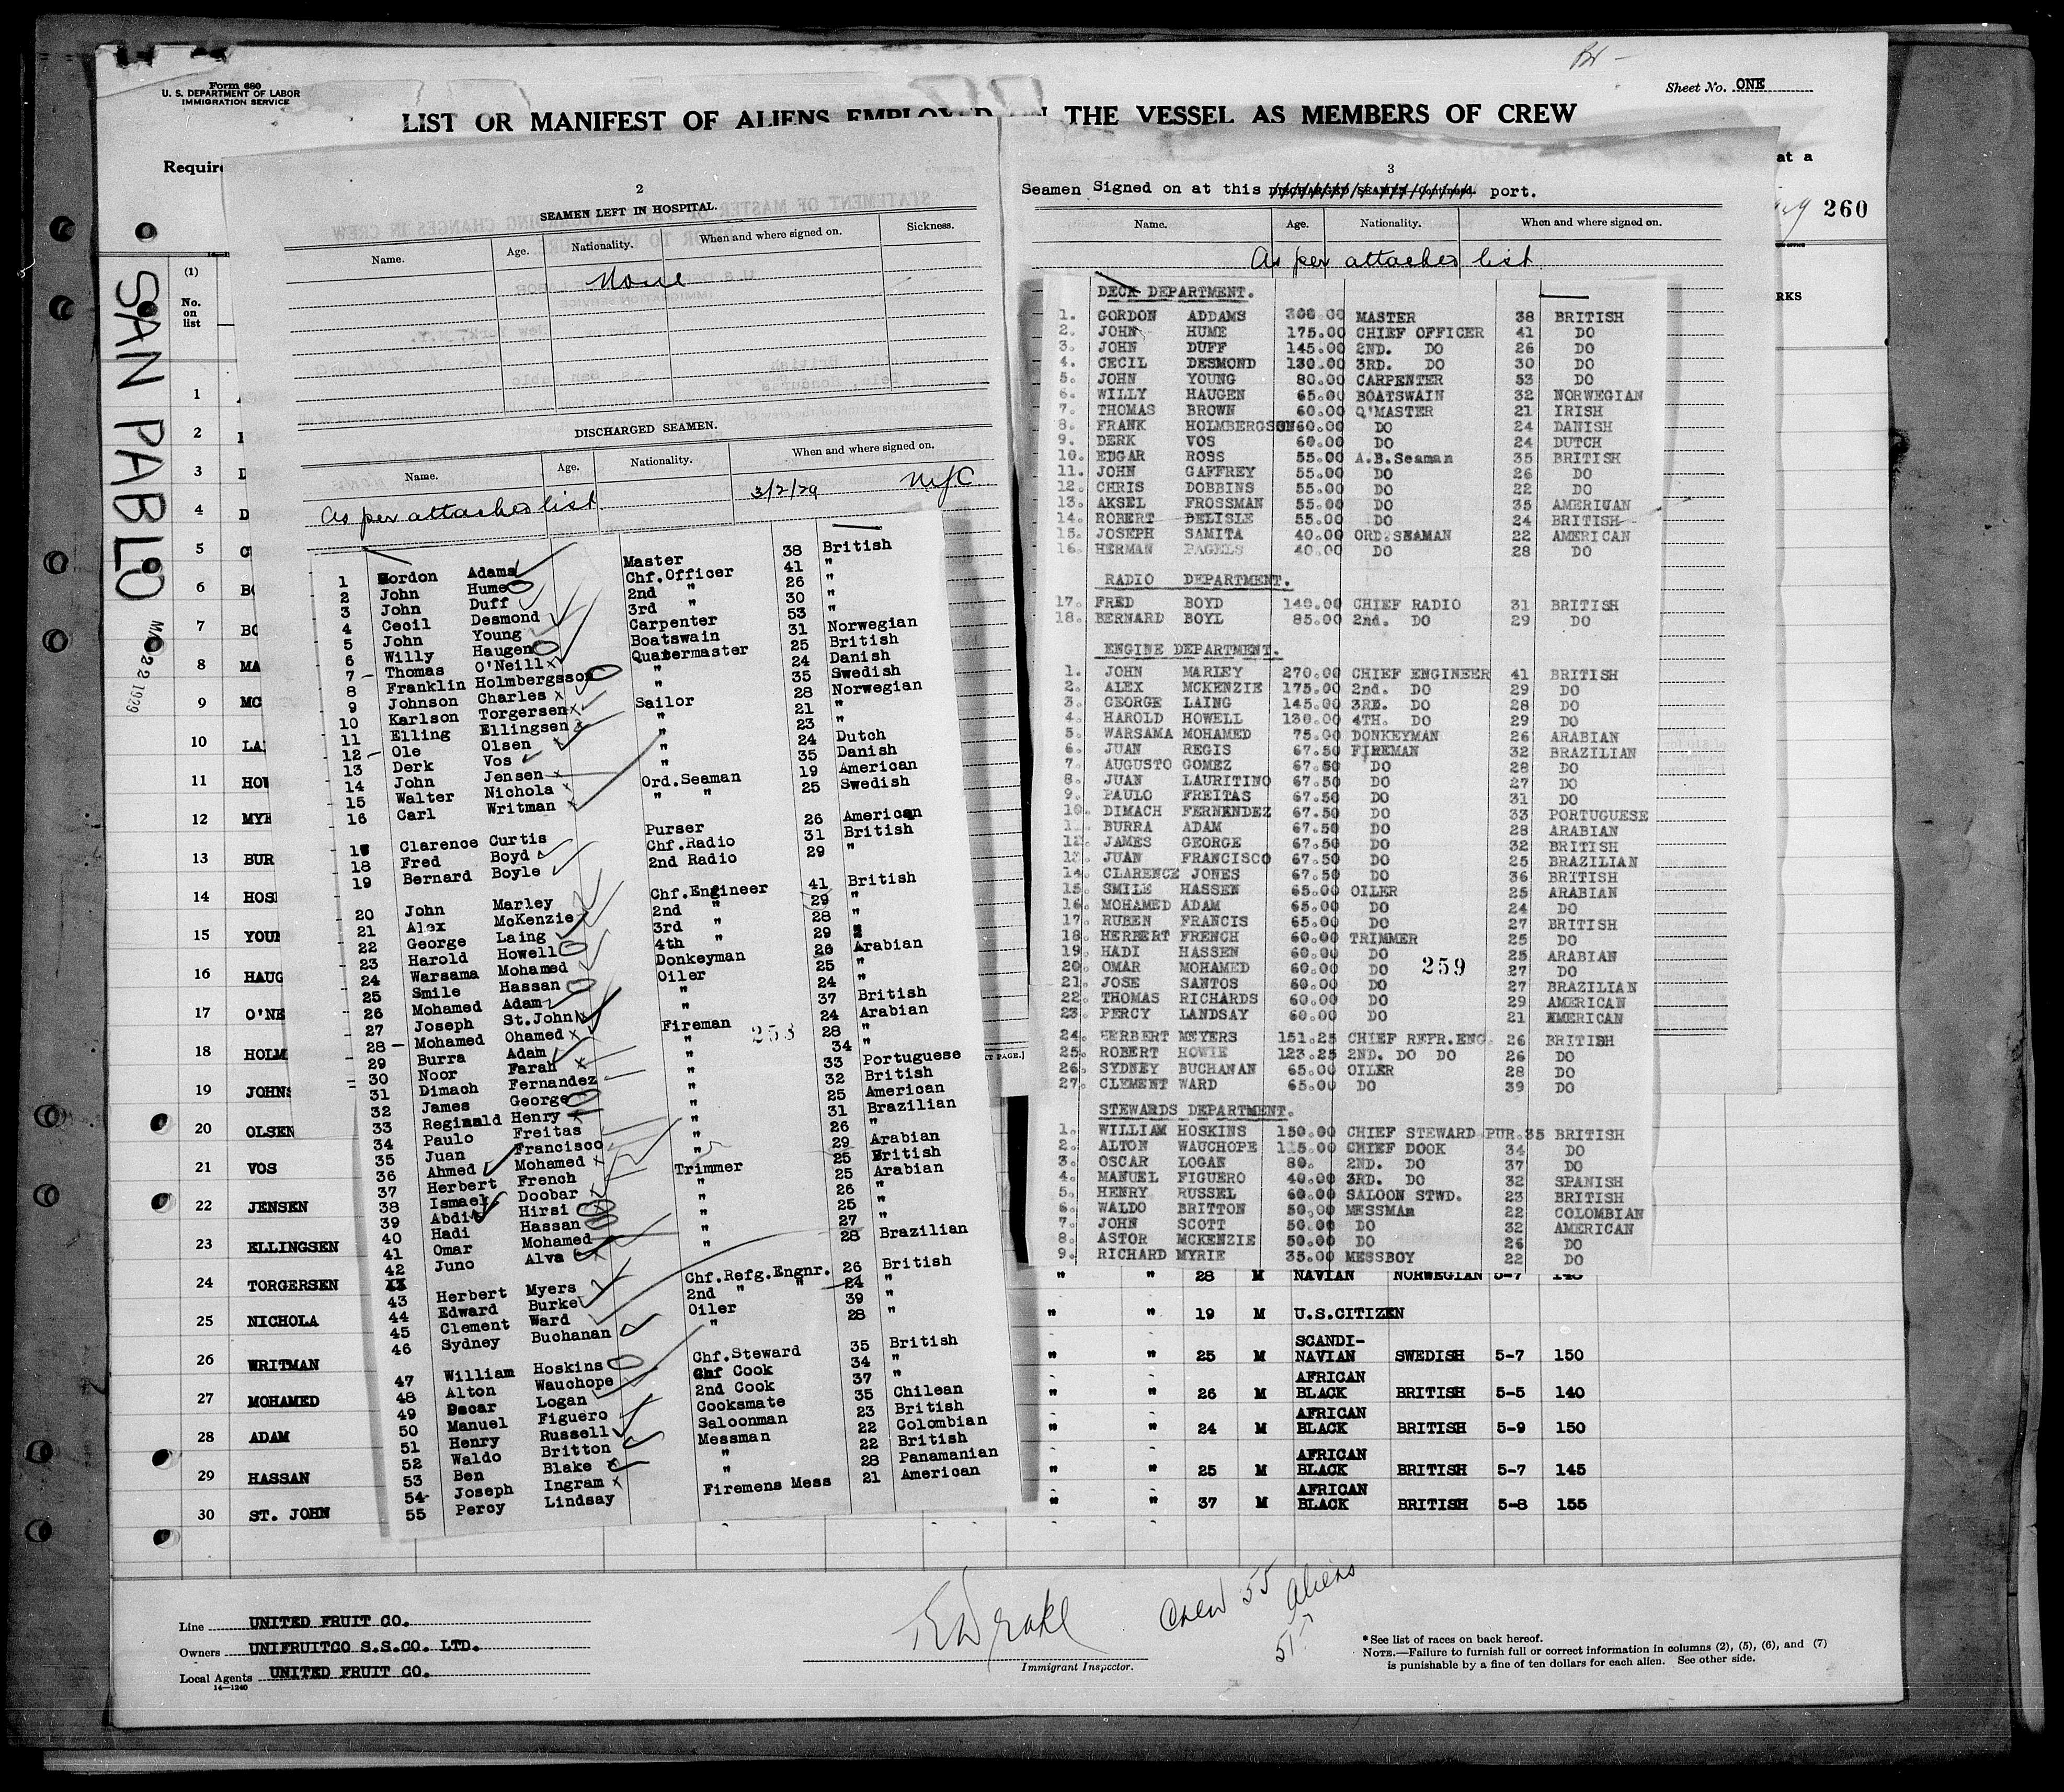 Form 680
U. S. DEPARTMENT OF LABOR
IMMIGRATION SERVICE
Sheet No. ONE
LIST OR MANIFEST OF ALIENS EMPLOYED ON THE VESSEL AS MEMBERS OF CREW
Require
at a
260
RKS
SAN PABLO
22 1929
(1)
No.
on
list
1
2
3 D
4 D
5
6 BO
7 BO
8 MA
9 MC
10 LA
11 HOW
12 MYR
13 BUR
14 HOS
15 YOU
16 HAUG
17 O'NE
18 HOLM
19 JOHNS
20 OLSEN
21 VOS
22 JENSEN
23 ELLINGSEN
24 TORGERSEN " " 28 M NAVIAN NORWEGIAN 5-7
25 NICHOLA " " 19 M U.S.CITIZEN
SCANDI-
26 WRITMAN " " 25 M NAVIAN SWEDISH 5-7 150
AFRICAN
27 MOHAMED " " 26 M BLACK BRITISH 5-5 140
AFRICAN
28 ADAM " " 24 M BLACK BRITISH 5-9 150
AFRICAN
29 HASSAN " " 25 M BLACK BRITISH 5-7 145
AFRICAN
30 ST. JOHN " " 37 M BLACK BRITISH 5-8 155
2
SEAMEN LEFT IN HOSPITAL.
Name. Age. Nationality. When and where signed on. Sickness.
None
DISCHARGED SEAMEN.
Name. Age. Nationality. When and where signed on.
As per attached list 3/2/29 NYC
1 Gordon Adams Master 38 British
2 John Hume Chf.Officer 41 "
3 John Duff 2nd " 26 "
4 Cecil Desmond 3rd " 30 "
5 John Young Carpenter 53 "
6 Willy Haugen Boatswain 31 Norwegian
7 Thomas O'Neill Quatermaster 25 British
8 Franklin Holmbergsson " 24 Danish
9 Johnson Charles " 35 Swedish
10 Karlson Torgersen Sailor 28 Norwegian
11 Elling Ellingsen " 21 "
12 Ole Olsen " 23 "
13 Derk Vos " 24 Dutch
14 John Jensen " 35 Danish
15 Walter Nichola Ord.Seaman 19 American
16 Carl Writman " " 25 Swedish
17 Clarence Curtis Purser 26 American
18 Fred Boyd Chf.Radio 31 British
19 Bernard Boyle 2nd Radio 29 "
20 John Marley Chf.Engineer 41 British
21 Alex McKenzie 2nd " 29 "
22 George Laing 3rd " 28 "
23 Harold Howell 4th " 29 "
24 Warsama Mohamed Donkeyman 26 Arabian
25 Smile Hassan Oiler 25 "
26 Mohamed Adam " 24 "
27 Joseph St.John " 37 British
28 Mohamed Ohamed Fireman 24 Arabian
29 Burra Adam " 28 "
30 Noor Farah " 34 "
31 Dimach Fernandez " 33 Portuguese
32 James George " 32 British
33 Reginald Henry " 25 American
34 Paulo Freitas " 31 Brazilian
35 Juan Francisco " 26 "
36 Ahmed Mohamed " 29 Arabian
37 Herbert French Trimmer 25 British
38 Ismael Doobar " 25 Arabian
39 Abdi Hirsi " 26 "
40 Hadi Hassan " 25 "
41 Omar Mohamed " 27 "
42 Juno Alva " 28 Brazilian
43 Herbert Myers Chf.Refg.Engnr. 26 British
44 Edward Burke 2nd " " 24 "
45 Clement Ward Oiler 39 "
46 Sydney Buchanan " 28 "
47 William Hoskins Chf.Steward 35 British
48 Alton Wauchope Chf Cook 34 "
49 Oscar Logan 2nd Cook 37 "
50 Manuel Figuero Cooksmate 35 Chilean
51 Henry Russell Saloonman 23 British
52 Waldo Britton Messman 22 Colombian
53 Ben Blake " 22 British
54 Joseph Ingram " 28 Panamanian
55 Percy Lindsay Firemens Mess 21 American
258
3
Seamen Signed on at this DISCHARGED SEAMEN—Continued. port.
Name. Age. Nationality. When and where signed on.
As per attached list
DECK DEPARTMENT.
1. GORDON ADDAMS 300.00 MASTER 38 BRITISH
2. JOHN HUME 175.00 CHIEF OFFICER 41 DO
3. JOHN DUFF 145.00 2ND. DO 26 DO
4. CECIL DESMOND 130.00 3RD. DO 30 DO
5. JOHN YOUNG 80.00 CARPENTER 53 DO
6. WILLY HAUGEN 65.00 BOATSWAIN 32 NORWEGIAN
7. THOMAS BROWN 60.00 Q'MASTER 21 IRISH
8. FRANK HOLMBERGSON 60.00 DO 24 DANISH
9. DERK VOS 60.00 DO 24 DUTCH
10. EDGAR ROSS 55.00 A.B.Seaman 35 BRITISH
11. JOHN GAFFREY 55.00 DO 26 DO
12. CHRIS DOBBINS 55.00 DO 22 DO
13. AKSEL FROSSMAN 55.00 DO 35 AMERICAN
14. ROBERT BELISLE 55.00 DO 24 BRITISH
15. JOSEPH SAMITA 40.00 ORD.SEAMAN 22 AMERICAN
16. HERMAN PAGELS 40.00 DO 28 DO
RADIO DEPARTMENT.
17. FRED BOYD 140.00 CHIEF RADIO 31 BRITISH
18. BERNARD BOYL 85.00 2nd. DO 29 DO
ENGINE DEPARTMENT.
1. JOHN MARLEY 270.00 CHIEF ENGINEER 41 BRITISH
2. ALEX MCKENZIE 175.00 2nd. DO 29 DO
3. GEORGE LAING 145.00 3RD. DO 28 DO
4. HAROLD HOWELL 130.00 4TH. DO 29 DO
5. WARSAMA MOHAMED 75.00 DONKEYMAN 26 ARABIAN
6. JUAN REGIS 67.50 FIREMAN 32 BRAZILIAN
7. AUGUSTO GOMEZ 67.50 DO 28 DO
8. JUAN LAURITINO 67.50 DO 27 DO
9. PAULO FREITAS 67.50 DO 31 DO
10. DIMACH FERNENDEZ 67.50 DO 33 PORTUGUESE
11. BURRA ADAM 67.50 DO 28 ARABIAN
12. JAMES GEORGE 67.50 DO 32 BRITISH
13. JUAN FRANCISCO 67.50 DO 25 BRAZILIAN
14. CLARENCE JONES 67.50 DO 36 BRITISH
15. SMILE HASSEN 65.00 OILER 25 ARABIAN
16. MOHAMED ADAM 65.00 DO 24 DO
17. RUBEN FRANCIS 65.00 DO 27 BRITISH
18. HERBERT FRENCH 60.00 TRIMMER 25 DO
19. HADI HASSEN 60.00 DO 25 ARABIAN
20. OMAR MOHAMED 60.00 DO 27 DO
259
21. JOSE SANTOS 60.00 DO 27 BRAZILIAN
22. THOMAS RICHARDS 60.00 DO 29 AMERICAN
23. PERCY LANDSAY 60.00 DO 21 AMERICAN
24. HERBERT MEYERS 151.25 CHIEF REFR.ENG. 26 BRITISH
25. ROBERT HOWIE 123.25 2ND. DO DO 26 DO
26. SYDNEY BUCHANAN 65.00 OILER 28 DO
27. CLEMENT WARD 65.00 DO 39 DO
STEWARDS DEPARTMENT.
1. WILLIAM HOSKINS 150.00 CHIEF STEWARD PUR.35 BRITISH
2. ALTON WAUCHOPE 115.00 CHIEF DOOK 34 DO
3. OSCAR LOGAN 80. 2ND. DO 37 DO
4. MANUEL FIGUERO 40.00 3RD. DO 32 SPANISH
5. HENRY RUSSEL 60.00 SALOON STWD. 23 BRITISH
6. WALDO BRITTON 50.00 MESSMAn 22 COLOMBIAN
7. JOHN SCOTT 50.00 DO 32 AMERICAN
8. ASTOR MCKENZIE 50.00 DO 26 DO
9. RICHARD MYRIE 35.00 MESSBOY 22 DO
Line UNITED FRUIT CO.
Owners UNIFRUITCO S.S.CO. LTD.
Local Agents UNITED FRUIT CO.
14—1240
Immigrant Inspector.
Crew 55 aliens
51
*See list of races on back hereof.
NOTE.—Failure to furnish full or correct information in columns (2), (5), (6), and (7)
is punishable by a fine of ten dollars for each alien. See other side.